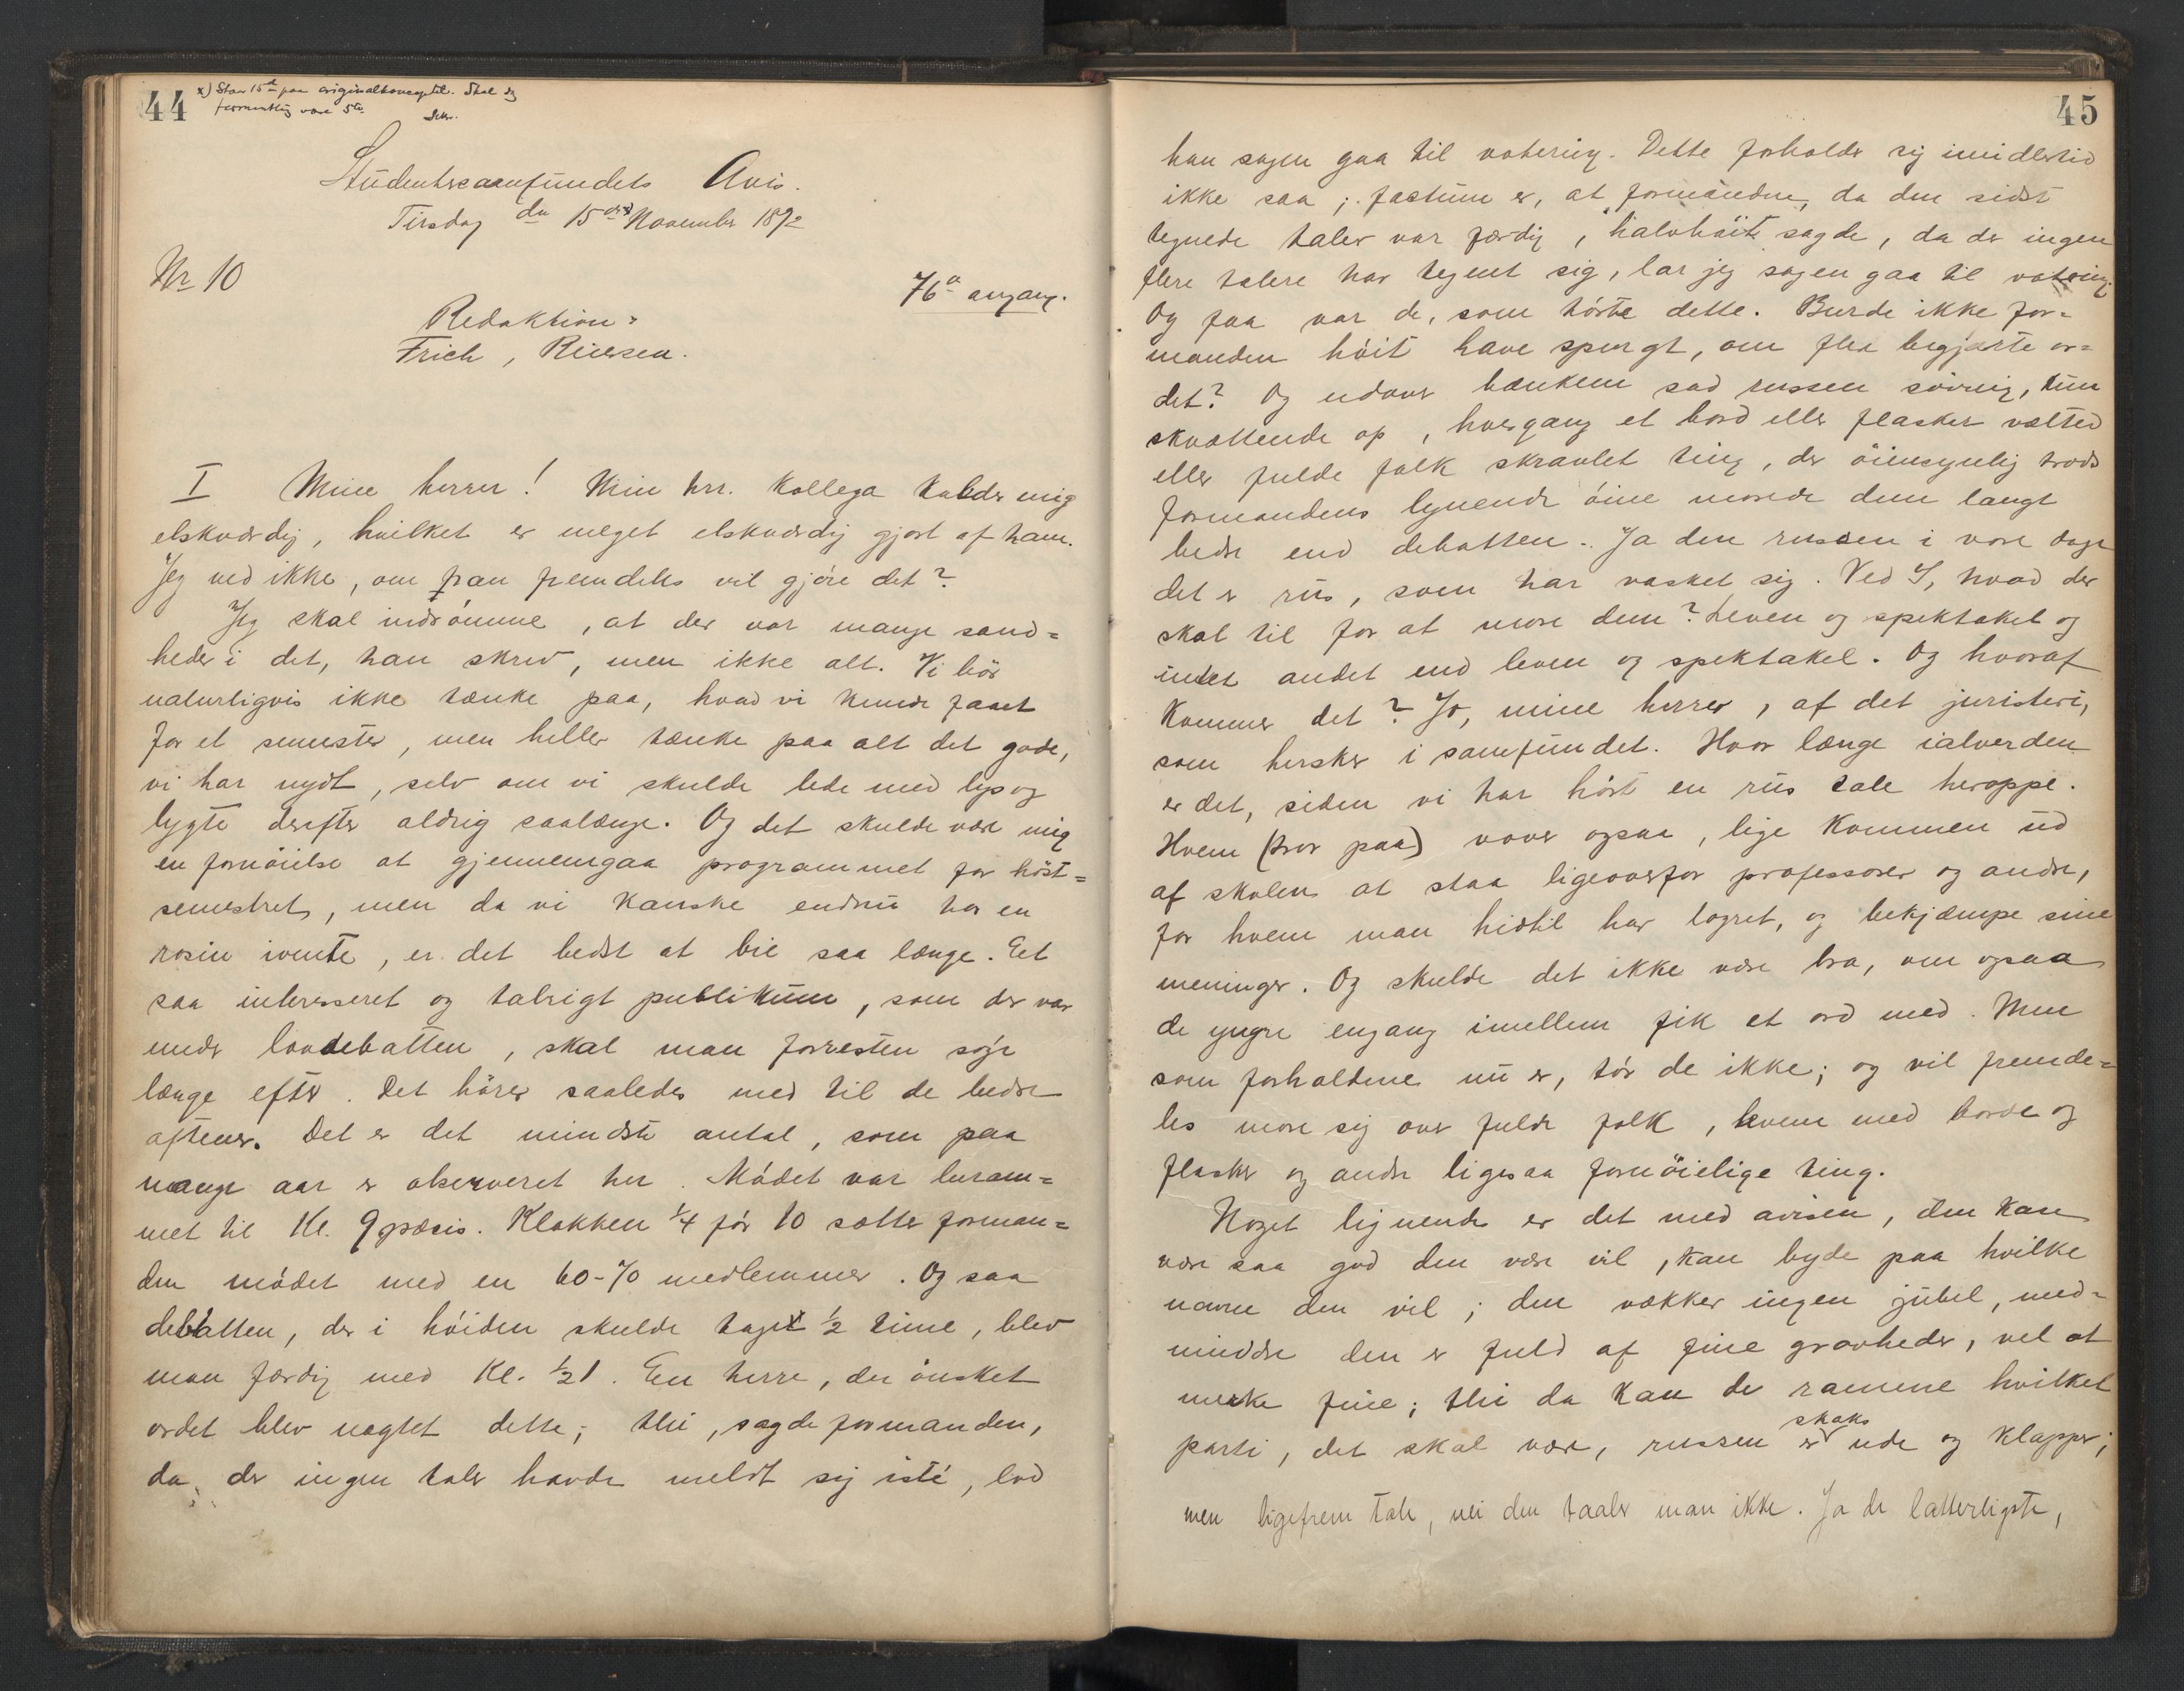 44
x) Staar 15de paa originalkonceptet. Skal dog
formentlig være 5te. Sekr.
Studentersamfundets Avis.
Tirsdag den 15de x) November 1892
Nr 10
76de argang.
Redaktion:
Frich, Riiersen.
I Mine herrer! Min hrr. kollega kalder mig
elskværdig, hvilket er meget elskværdig gjort af ham.
Jeg ved ikke, om han fremdeles vil gjøre det?
Jeg skal indrømme, at der var mange sand=
heder i det, han skrev, men ikke alt. Vi bør
naturligvis ikke tænke paa, hvad vi kunde faaet
for et semester, men heller tænke paa alt det gode,
vi har nydt, selv om vi skulde lede med lys og
lygte derefter aldrig saalænge. Og det skulde være mig
en fornøielse at gjennemgaa programmet for høst=
semestret, men da vi kanske endnu har en
rosin ivente, er det bedst at bie saa længe. Et
saa interesseret og talrigt publikum, som der var
under lovdebatten, skal man forresten søge
længe efter. Det hører saaledes med til de bedre
aftener. Det er det mindste antal, som paa
mange aar er observeret her. Mødet var beram=
met til Kl. 9 præcis. Klokken 1/4 før 10 satte forman=
den mødet med en 60-70 medlemmer. Og saa
debatten, der i høiden skulde taget 1/2 time, blev
man færdig med Kl. 1/2 1. En herre, der ønsket
ordet blev nægtet dette; thi, sagde formanden,
da der ingen taler havde meldt sig isté, lod
45
han sagen gaa til votering. Dette forholder sig imidlertid
ikke saa; factum er, at formanden, da den sidst
tegnede taler var færdig, halvhøit sagde, da der ingen
flere talere har tegnet sig, lar jeg sagen gaa til votering.
Og faa var de, som hørte dette. Burde ikke for=
manden høit have spurgt, om flere begjærte or=
det? Og udover bænkene sad russen søvnig, kun
skvættende op, hvergang et bord eller flasker vælted
eller fulde folk skravlet ting, der øiensynlig trods
formandens lynende øine morede dem langt
bedre end debatten. Ja den russen i vore dage
det er rus, som har vasket sig. Ved I, hvad der
skal til for at more dem? Leven og spektakel og
intet andet end leven og spektakel. Og hvoraf
kommer det? Jo, mine herrer, af det juristeri,
som hersker i samfundet. Hvor længe ialverden
er det, siden vi har hørt en rus tale heroppe.
Hvem (tror paa) vover ogsaa, lige kommen ud
af skolen at staa ligeoverfor professorer og andre,
for hvem man hidtil har logret, og bekjæmpe sine
meninger. Og skulde det ikke være bra, om ogsaa
de yngre engang imellem fik et ord med. Men
som forholdene nu er, tør de ikke; og vil fremde=
les more sig over fulde folk, leven med borde og
flasker og andre ligesaa fornøielige ting.
Noget lignende er det med avisen, den kan
være saa god den være vil, kan byde paa hvilke
navne den vil; den vækker ingen jubel, med=
mindre den er fuld af fine grovheder, vel at
merke fine; thi da kan de ramme hvilket
parti, det skal være, russen er straks ude og klapper;
men ligefrem tale, nei den taaler man ikke. Ja de latterligste,